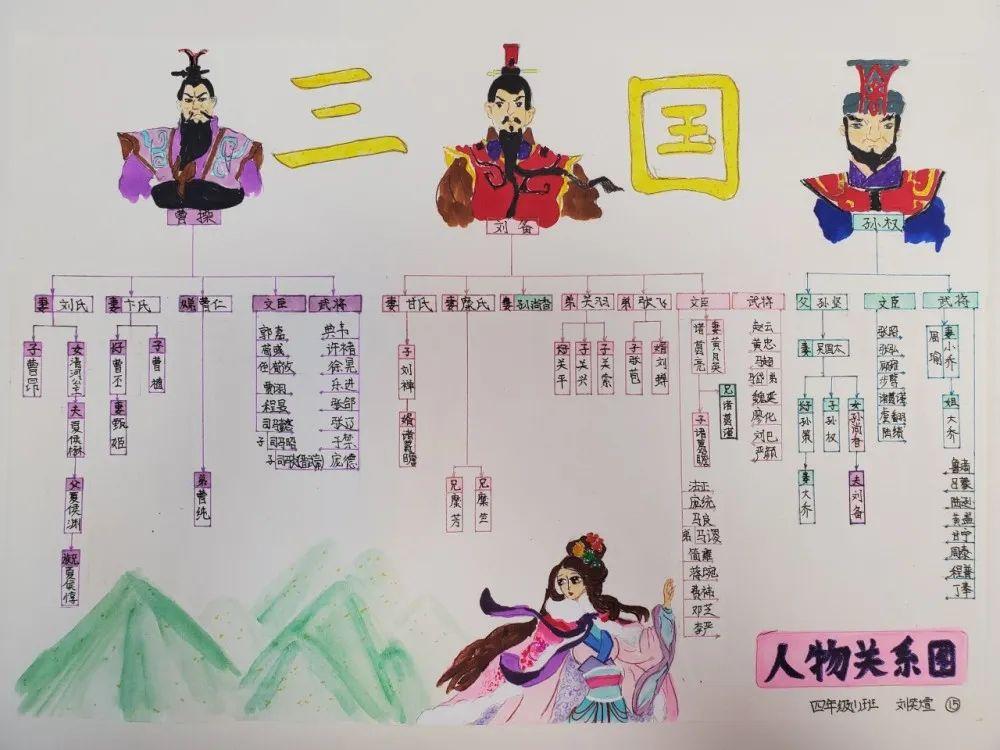 三国
曹操
刘备
孙权
妻 刘氏
妻 卞氏
曹仁
文臣
武将
妻 甘氏
妻 糜氏
妻 孙尚香
弟 关羽
弟 张飞
文臣
武将
父 孙坚
文臣
武将
子 曹昂
女 清河公主
夫 夏侯楙
父 夏侯渊
夏侯惇
曹丕
妻 甄姬
子 曹植
弟 曹纯
郭嘉
荀彧
荀攸
曹羽
程昱
司马懿
子 司马昭
典韦
许褚
徐晃
乐进
张郃
张辽
于禁
庞德
子 刘禅
婿 诸葛瞻
兄 糜芳
兄 糜竺
关平
子 关兴
子 关索
子 张苞
婿 刘禅
诸葛亮
妻 黄月英
兄 诸葛瑾
子 诸葛瞻
法正
庞统
马良
弟 马谡
简雍
蒋琬
费祎
邓芝
李严
赵云
黄忠
马超
马岱 弟
魏延
廖化
刘巴
严颜
妻 吴国太
孙策
妻 大乔
子 孙权
女 孙尚香
夫 刘备
张昭
张弘
顾雍
步骘
诸葛瑾
虞翻
陆绩
周瑜
妻 小乔
姐 大乔
鲁肃
吕蒙
陆逊
黄盖
甘宁
周泰
程普
丁奉
人物关系图
四年级(1)班 刘奕萱 ⑮